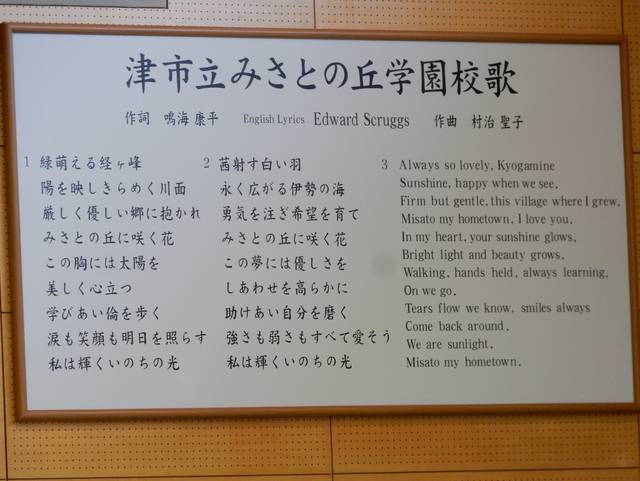 津市立みさとの丘学園校歌
作詞 鳴海 康平 English Lyrics Edward Scruggs 作曲 村治 聖子
1 緑萌える経ヶ峰
陽を映しきらめく川面
厳しく優しい郷に抱かれ
みさとの丘に咲く花
この胸には太陽を
美しく心立つ
学びあい倫を歩く
涙も笑顔も明日を照らす
私は輝くいのちの光
2 茜射す白い羽
永く広がる伊勢の海
勇気を注ぎ希望を育て
みさとの丘に咲く花
この夢には優しさを
しあわせを高らかに
助けあい自分を磨く
強さも弱さもすべて愛そう
私は輝くいのちの光
3 Always so lovely, Kyogamine
Sunshine, happy when we see,
Firm but gentle, this village where I grew,
Misato my hometown, I love you.
In my heart, your sunshine glows,
Bright light and beauty grows.
Walking, hands held, always learning,
On we go.
Tears flow we know, smiles always
Come back around.
We are sunlight,
Misato my hometown.